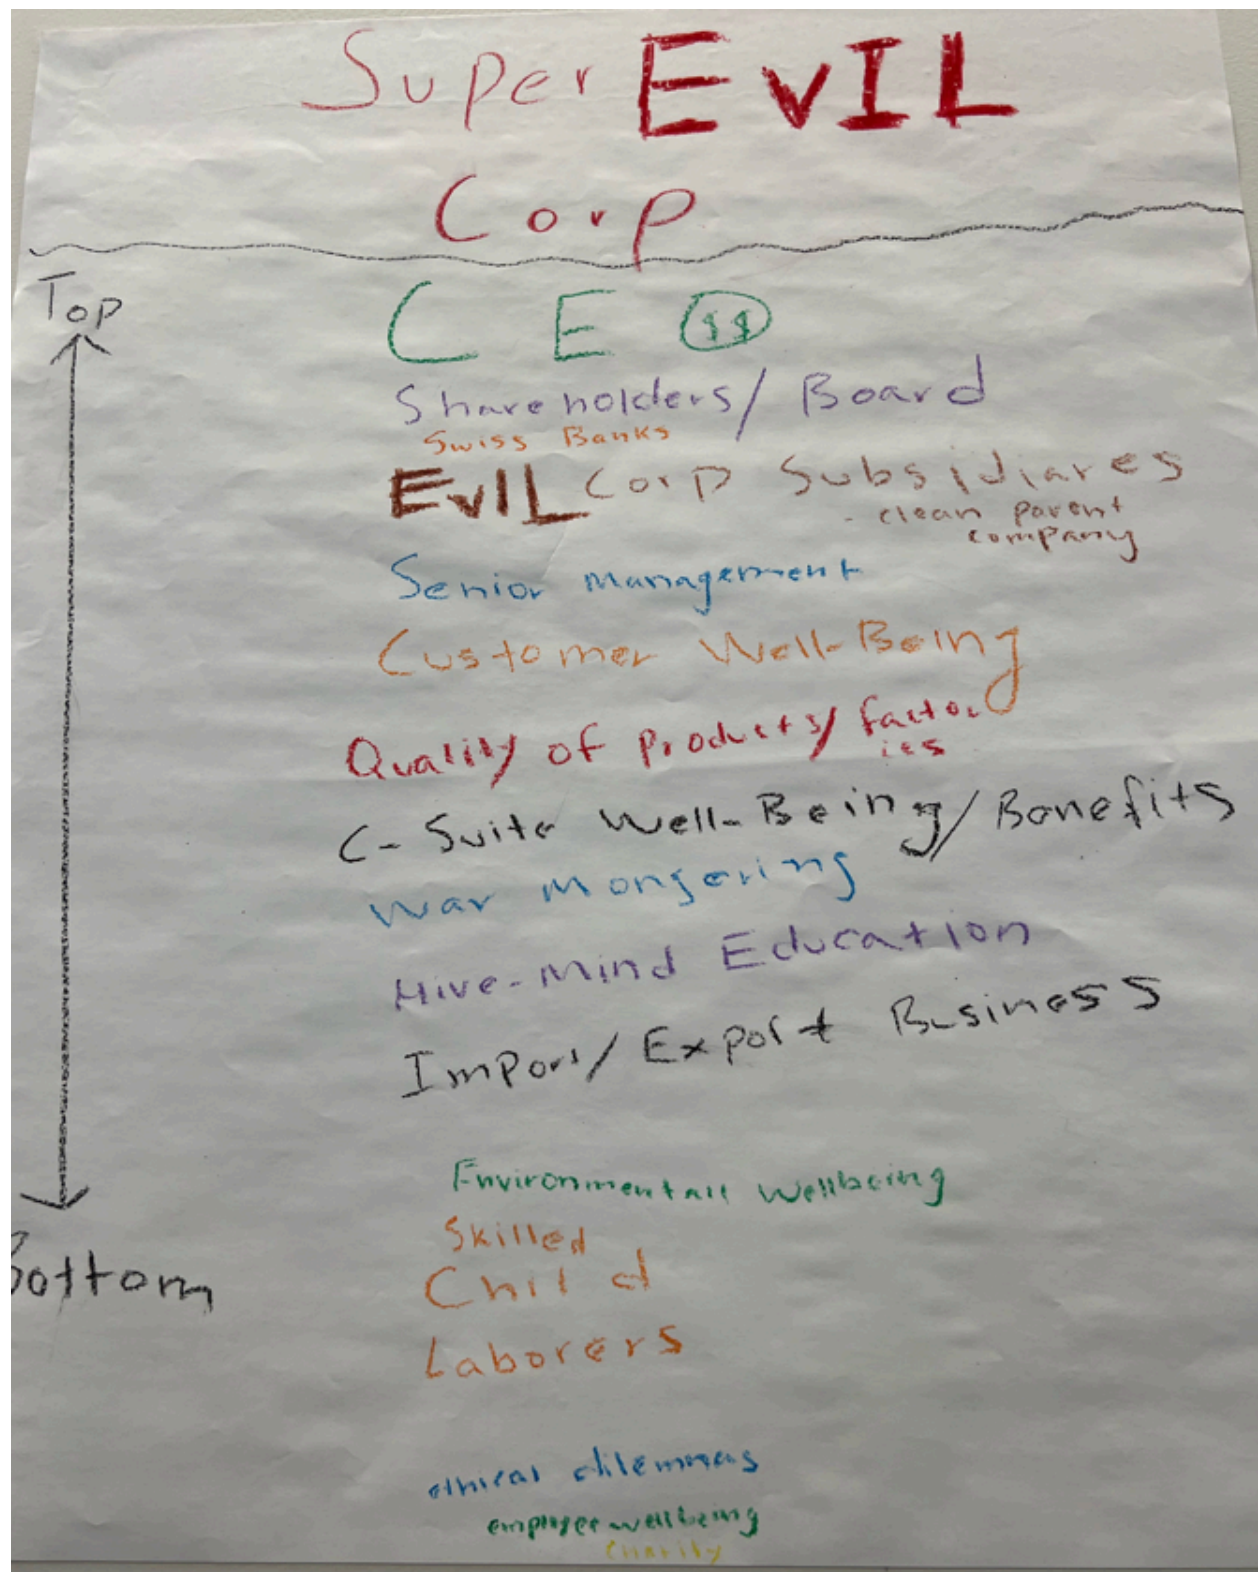 Super EvIL
Corp
Top
C E $$
Shareholders/ Board
Swiss Banks
EvIL Corp Subsidiares
- clean parent
company
Senior Management
Customer Well-Being
Quality of Products/ factor
ies
C-Suite Well-Being/Benefits
War Mongering
Hive-Mind Education
Import/Export Business
Environmentall Wellbeing
Skilled
Child
Laborers
Bottom
ethical dilemmas
employee wellbeing
Charity